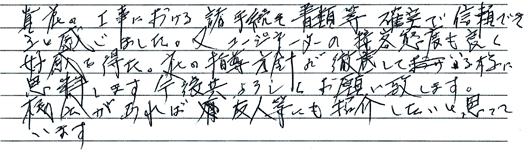 貴社の工事における諸手続き書類等確実で信頼でき
ると感じました。又マネージャーの接客態度も良く
好感を得た。社の指導方針が徹底して おる様に
思考します 今後共よろしくお願い致します。
機会があれば 友人等にも紹介したいと思って
います